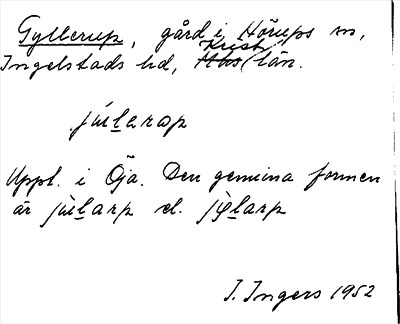 Gyllerup, gård i Hörups sn,
Ingelstads hd, Krist. län.
jùl̲arap
Uppt. i Öja. Den genuina formen
är jùl̲arp el. jỳl̲arp
I. Ingers 1952